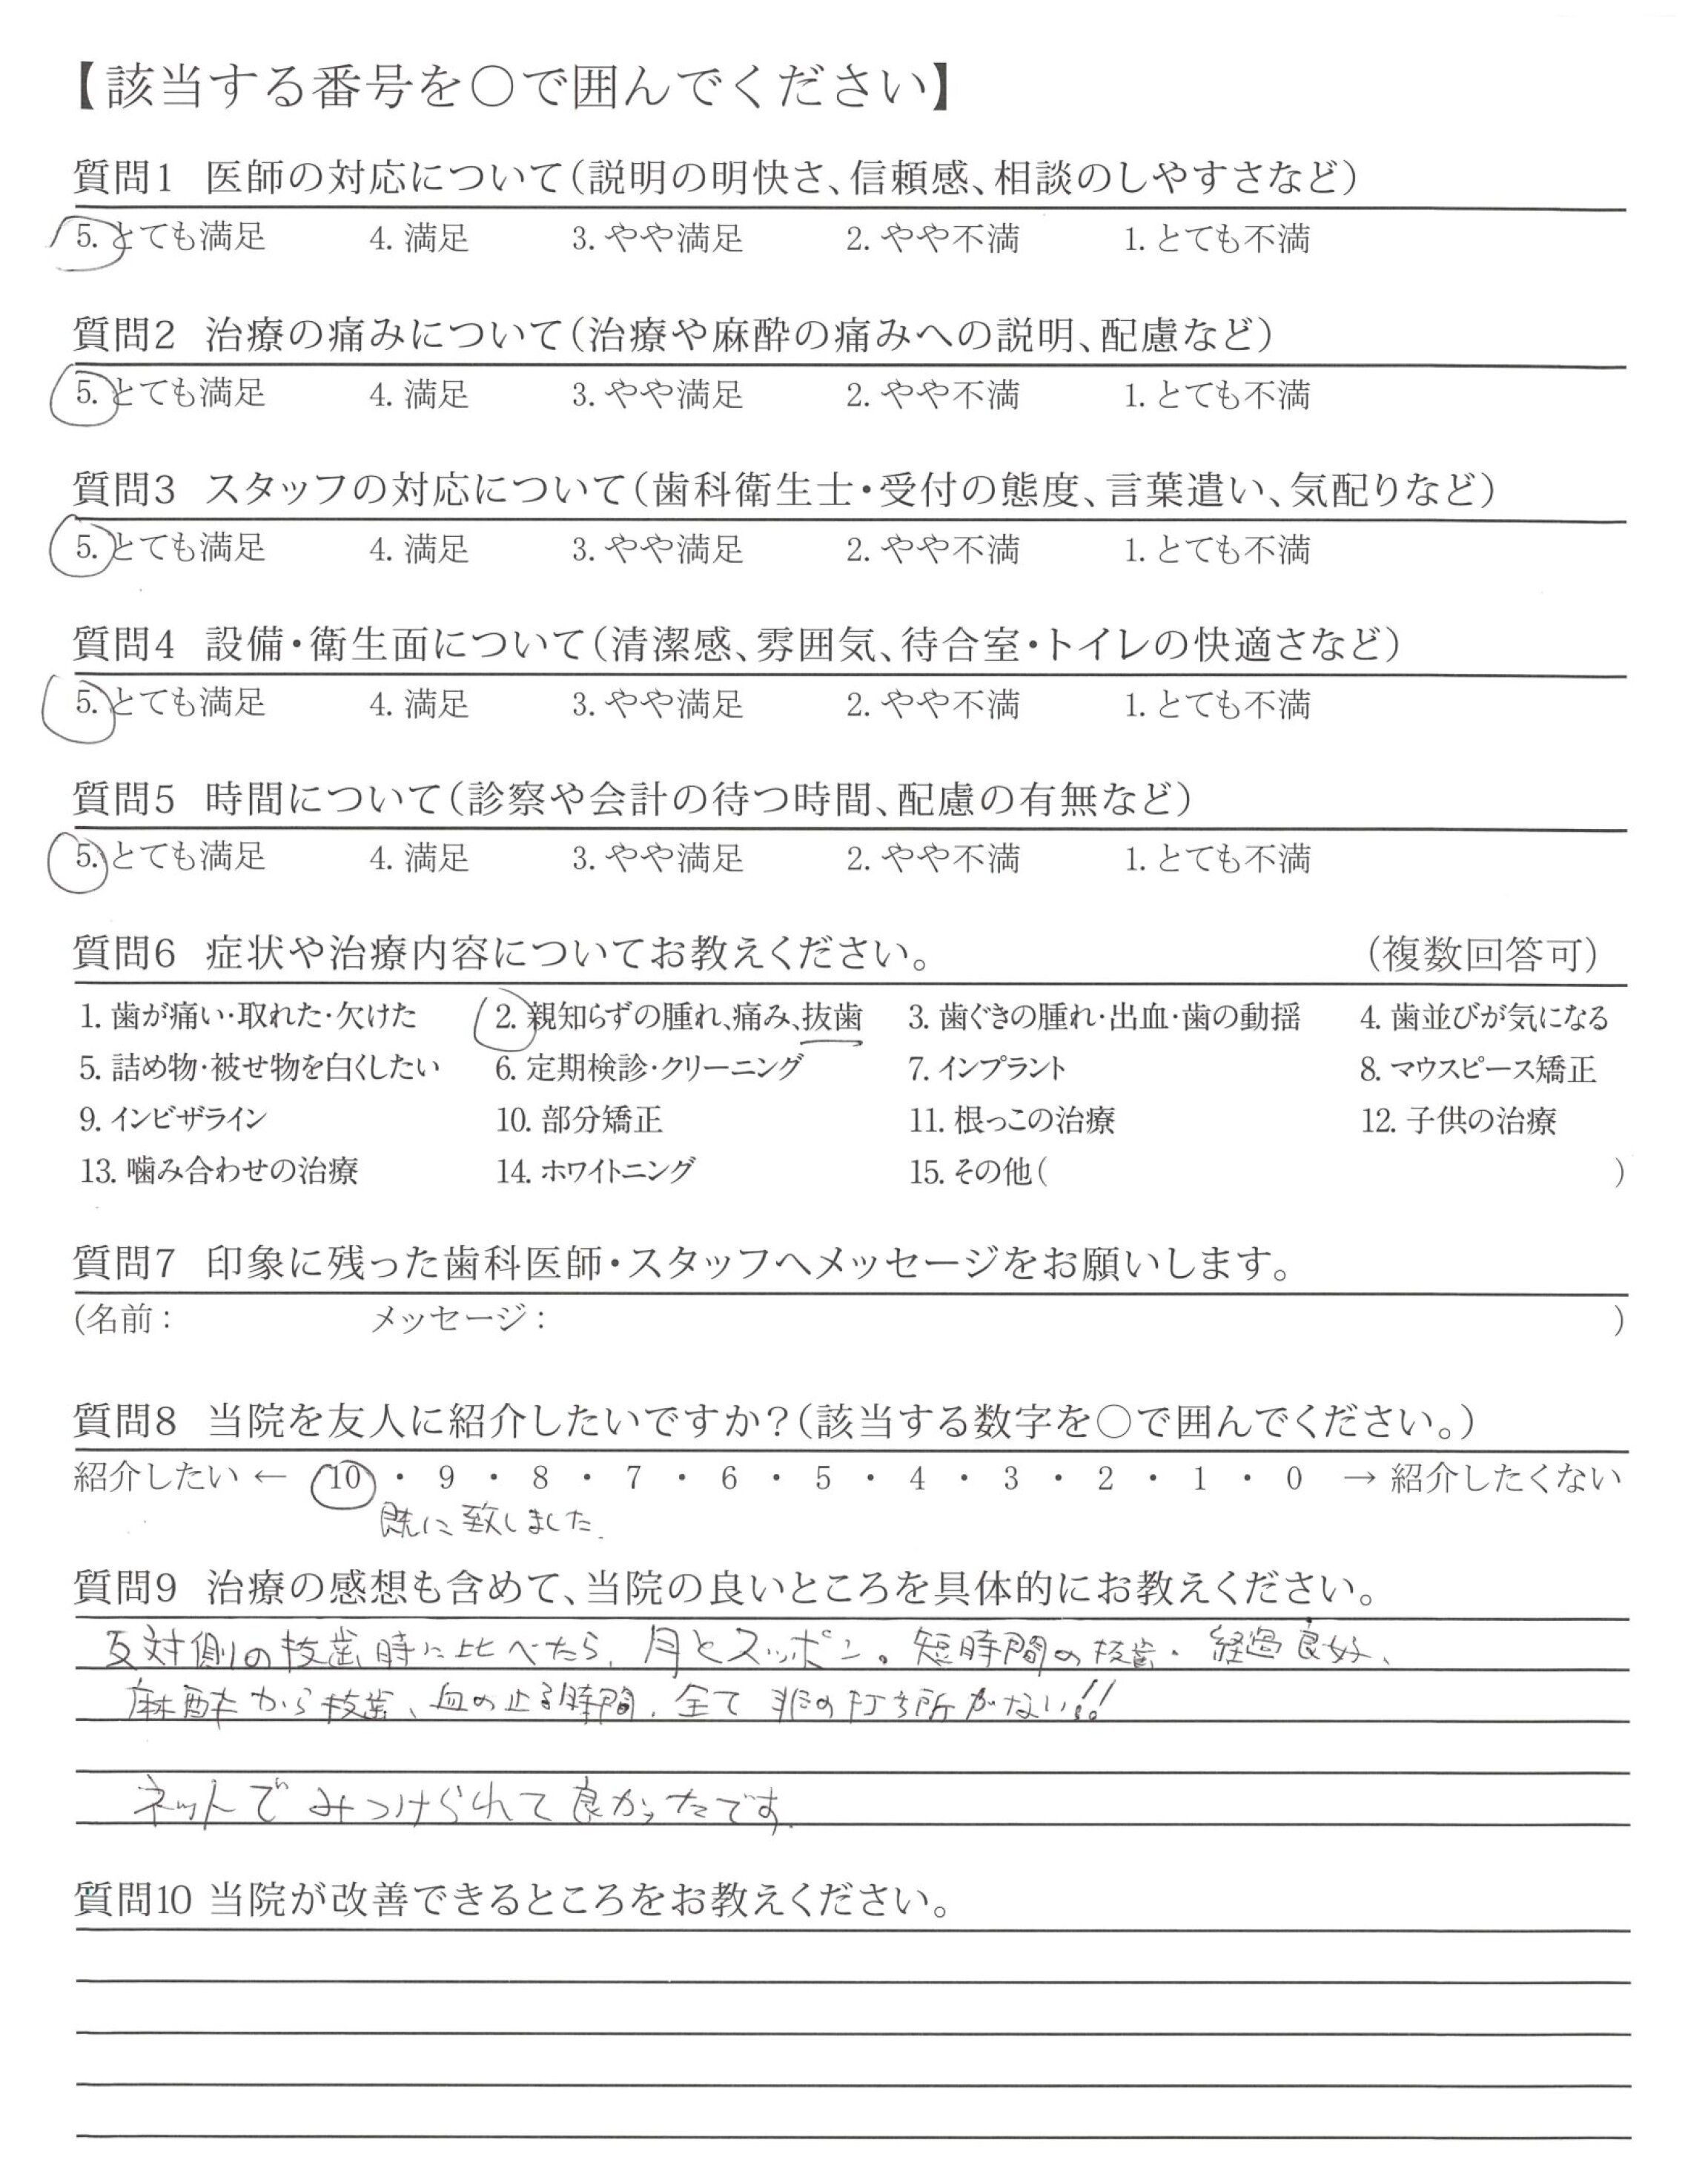 【該当する番号を○で囲んでください】
質問1 医師の対応について（説明の明快さ、信頼感、相談のしやすさなど）
5. とても満足 4. 満足 3. やや満足 2. やや不満 1. とても不満
質問2 治療の痛みについて（治療や麻酔の痛みへの説明、配慮など）
5. とても満足 4. 満足 3. やや満足 2. やや不満 1. とても不満
質問3 スタッフの対応について（歯科衛生士・受付の態度、言葉遣い、気配りなど）
5. とても満足 4. 満足 3. やや満足 2. やや不満 1. とても不満
質問4 設備・衛生面について（清潔感、雰囲気、待合室・トイレの快適さなど）
5. とても満足 4. 満足 3. やや満足 2. やや不満 1. とても不満
質問5 時間について（診察や会計の待つ時間、配慮の有無など）
5. とても満足 4. 満足 3. やや満足 2. やや不満 1. とても不満
質問6 症状や治療内容についてお教えください。 （複数回答可）
1. 歯が痛い・取れた・欠けた 2. 親知らずの腫れ、痛み、抜歯 3. 歯ぐきの腫れ・出血・歯の動揺 4. 歯並びが気になる
5. 詰め物・被せ物を白くしたい 6. 定期検診・クリーニング 7. インプラント 8. マウスピース矯正
9. インビザライン 10. 部分矯正 11. 根っこの治療 12. 子供の治療
13. 噛み合わせの治療 14. ホワイトニング 15. その他（ ）
質問7 印象に残った歯科医師・スタッフへメッセージをお願いします。
（名前： メッセージ： ）
質問8 当院を友人に紹介したいですか？（該当する数字を○で囲んでください。）
紹介したい ← 10 ・ 9 ・ 8 ・ 7 ・ 6 ・ 5 ・ 4 ・ 3 ・ 2 ・ 1 ・ 0 → 紹介したくない
既に致しました.
質問9 治療の感想も含めて、当院の良いところを具体的にお教えください。
反対側の抜歯時に比べたら、月とスッポン。短時間の抜歯・経過良好、
麻酔から抜歯、血の止る時間、全て非の打ち所がない!!
ネットでみつけられて良かったです.
質問10 当院が改善できるところをお教えください。